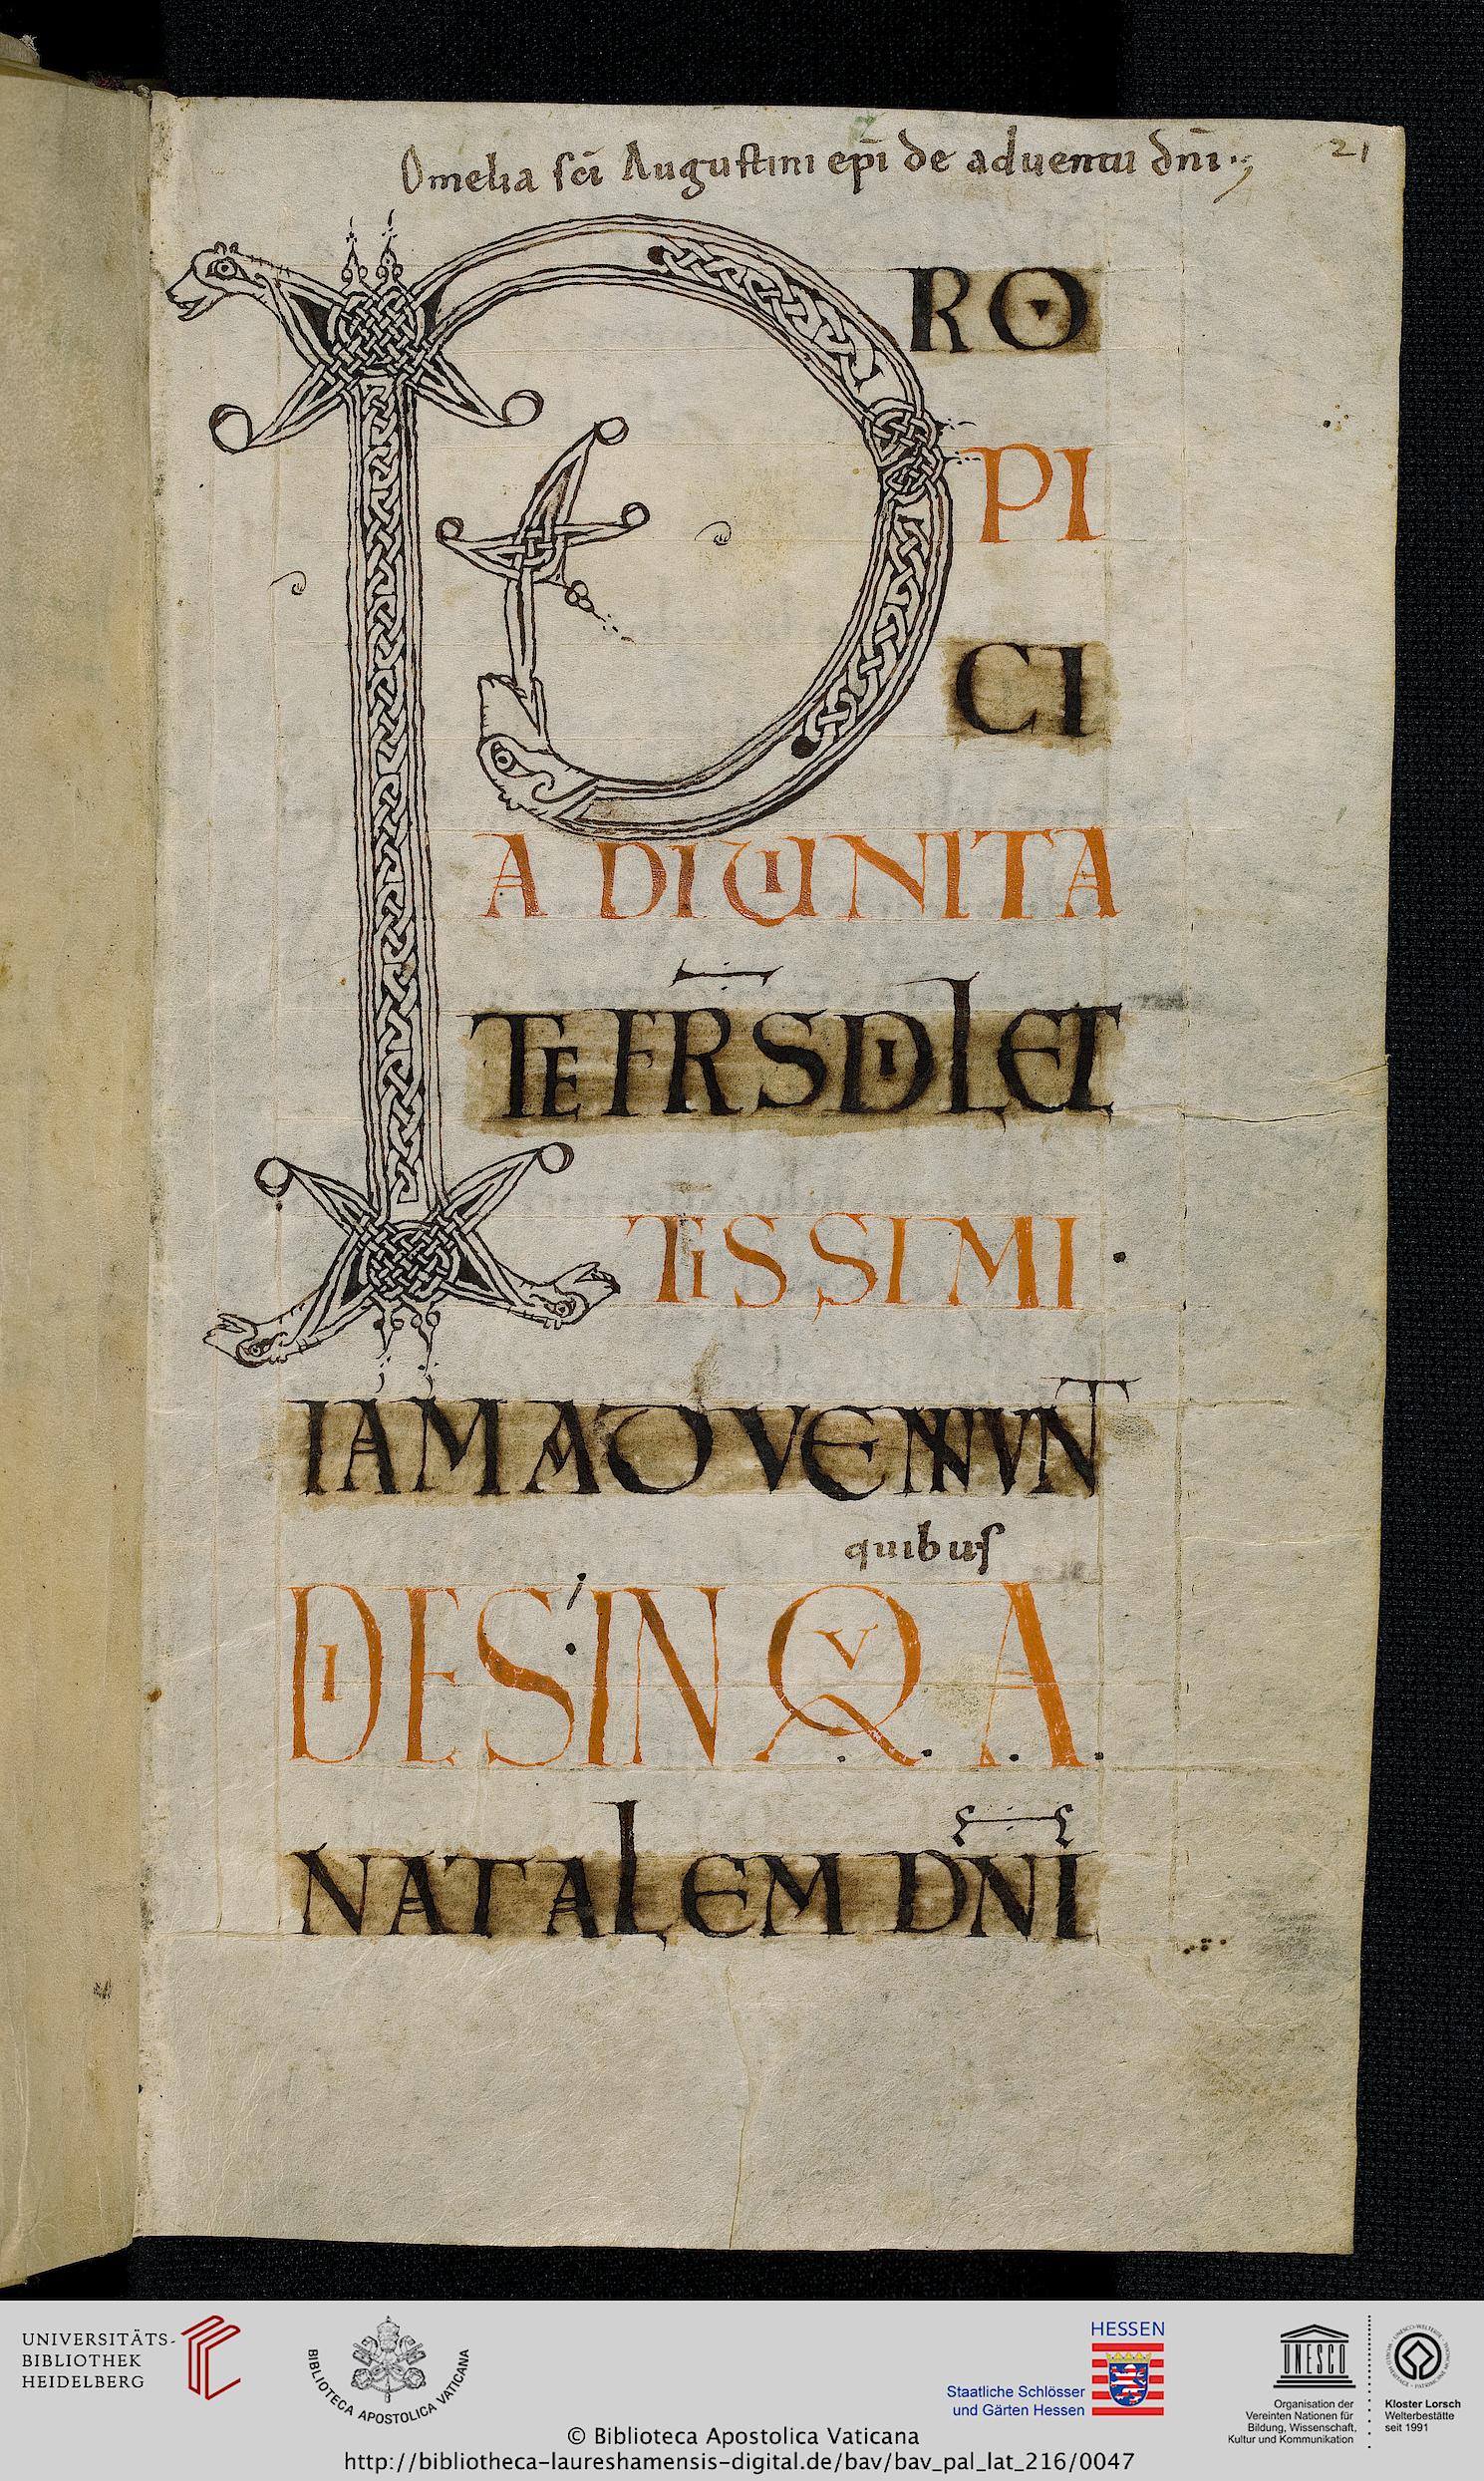 Omelia sc̄i Augustini ep̄i de aduentu dn̄i
21
PRO
PI
CI
A DIUINITA
TE FR̄S DILEC
TISSIMI
IAM ADVENERVNT
quibus
DIES IN QVA
NATALEM DN̄I
UNIVERSITÄTS-
BIBLIOTHEK
HEIDELBERG
BIBLIOTECA APOSTOLICA VATICANA
HESSEN
Staatliche Schlösser
und Gärten Hessen
UNESCO
Organisation der
Vereinten Nationen für
Bildung, Wissenschaft,
Kultur und Kommunikation
Kloster Lorsch
Welterbestätte
seit 1991
© Biblioteca Apostolica Vaticana
http://bibliotheca-laureshamensis-digital.de/bav/bav_pal_lat_216/0047